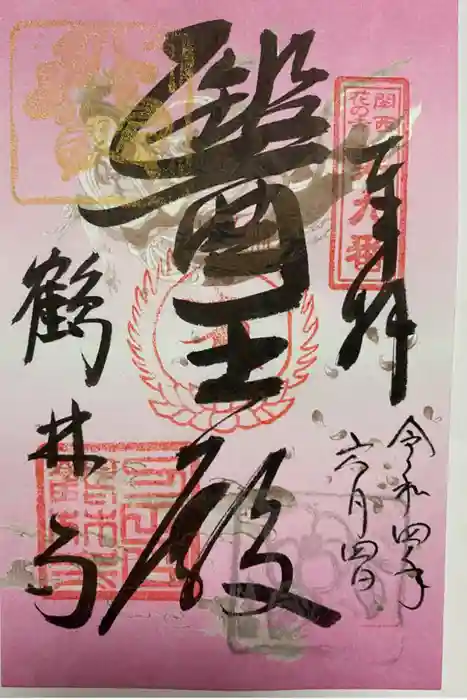 奉拝
関西
花の寺
第九番
令和四年
六月四日
醫王殿
鶴林寺